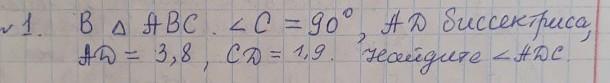 №1. В △ ABC. ∠C = 90°, AD биссектриса,
AD = 3,8, CD = 1,9. Найдите ∠ADC.